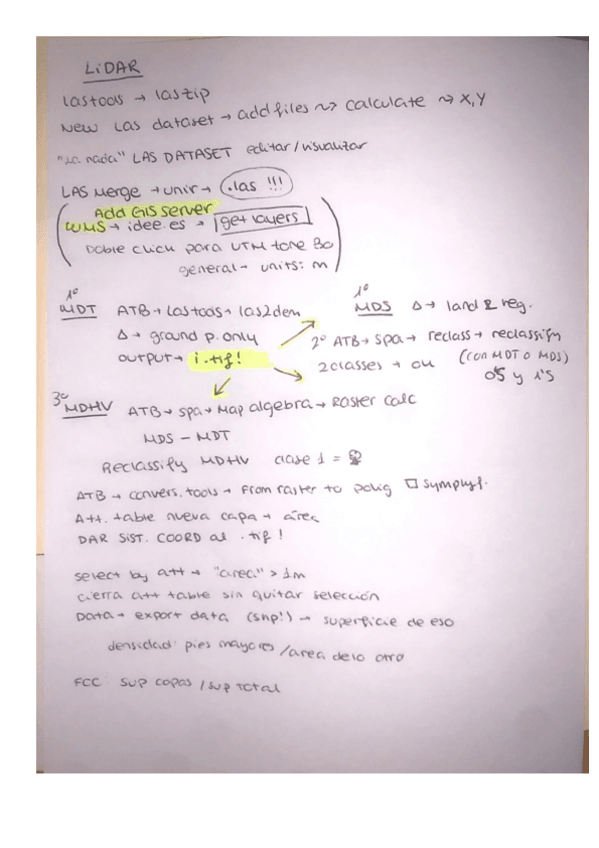 LiDAR
lastools → laszip
New Las dataset → add files ~> calculate ~> X,Y
LAS DATASET editar/visualizar
LAS Merge → unir → .las !!!
Add GIS server
WMS → idee.es → get layers
Doble click para UTM zone 30
general → units: m
1º MDT ATB → Lastools → las2dem
Δ → ground p. only
output → !.tif!
1º MDS Δ → land & veg.
2º ATB → spa → reclass → reclassify
2 classes → ok (con MDT o MDS)
0's y 1's
3º MDHV ATB → spa → Map algebra → Raster calc
MDS - MDT
Reclassify MDHV clase 1 =
ATB → convers. tools → From raster to polig □ symplyf.
Att. table nueva capa → área
DAR SIST. COORD al .tif !
select by att → "area" > 1m
cierra att table sin quitar selección
Data → export data (shp!) → superficie de eso
densidad: pies mayores /area de lo otro
FCC: sup copas / sup total